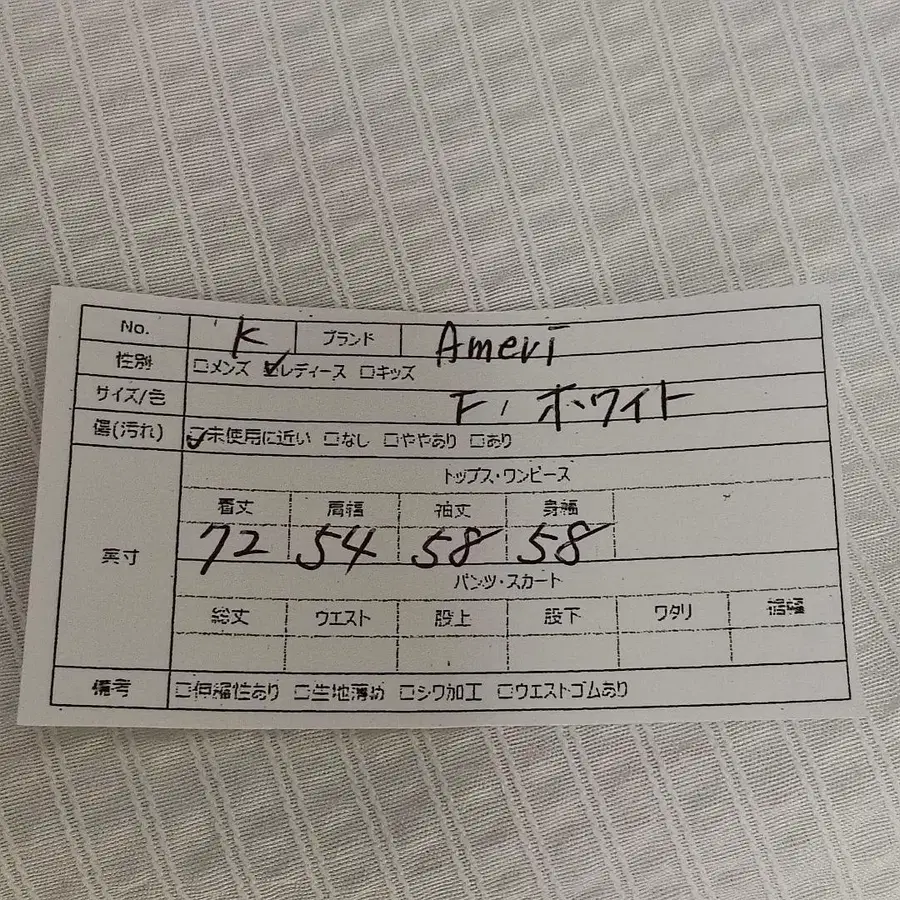 No. K ブランド Ameri
性別 □メンズ ☑レディース □キッズ
サイズ/色 F, ホワイト
傷(汚れ) ☑未使用に近い □なし □ややあり □あり
トップス・ワンピース
着丈 肩幅 袖丈 身幅
72 54 58 58
実寸
パンツ・スカート
総丈 ウエスト 股上 股下 ワタリ 裾幅
備考 □伸縮性あり □生地薄め □シワ加工 □ウエストゴムあり